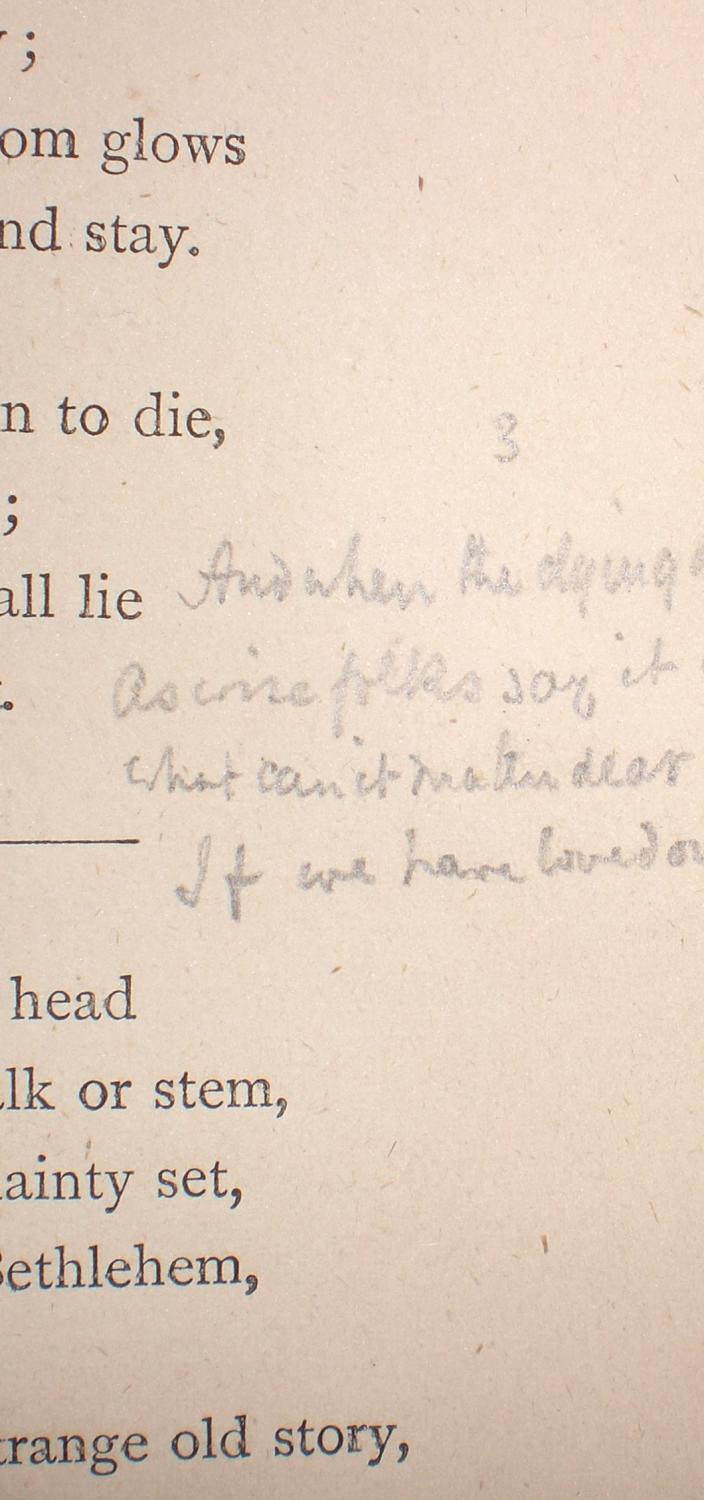 ;
om glows
nd stay.
n to die,
3
;
And when the dying
all lie
As wise folks say it
.
What can it matter dear
If we have loved
head
lk or stem,
ainty set,
ethlehem,
trange old story,